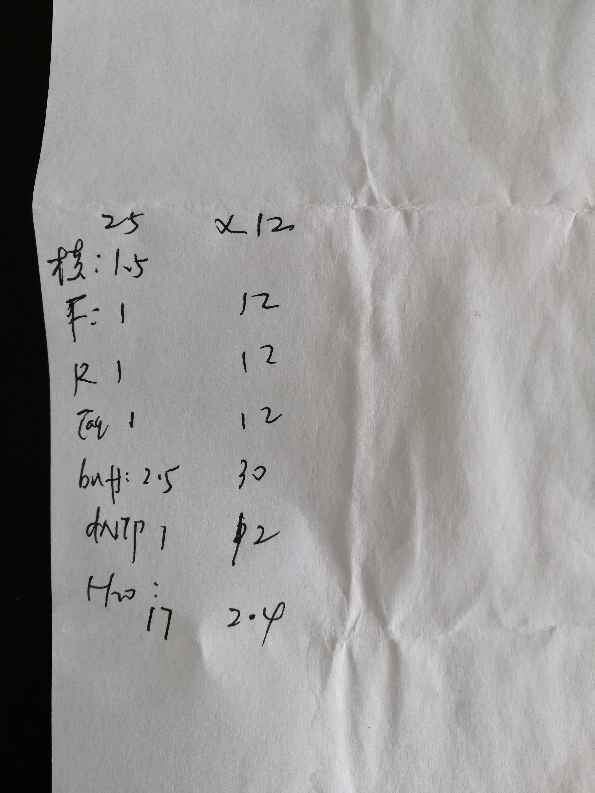 25 ×12
模: 1.5
F: 1 12
R 1 12
Taq 1 12
buff: 2.5 30
dNTP 1 12
H2O:
17 2.04